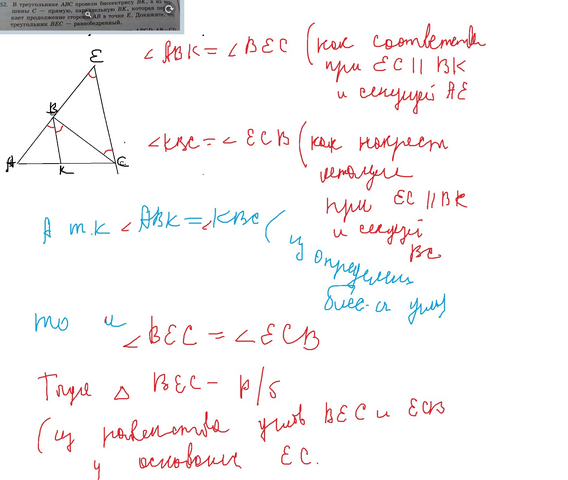 52. В треугольнике ABC провели биссектрису BK, а из вер-
шины C — прямую, параллельную BK, которая пе
кает продолжение стороны AB в точке E. Докажите,
треугольник BEC — равнобедренный.
E
B
A
K
C
∠ABK = ∠BEC (как соответств
при EC || BK
и секущей AE
∠KBC = ∠ECB (как накрест
лежащие
при EC || BK
и секущей
BC
А т.к ∠ABK = ∠KBC (
из определения
бисс-сы угла
то и
∠BEC = ∠ECB
Тогда △ BEC - р/б
(из равенства углов BEC и ECB
у основания EC.